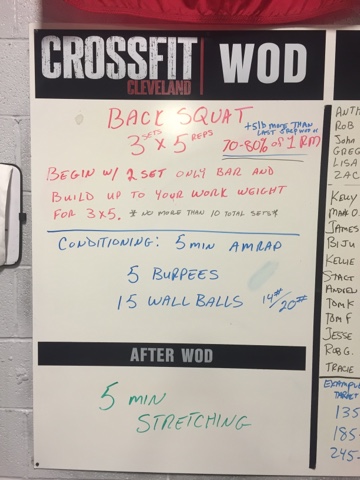 CROSSFIT WOD
CLEVELAND
BACK SQUAT
+5lb MORE THAN
LAST 5 REP WOD or
3 SETS x 5 REPS
70-80% of 1 RM
BEGIN W/ 2 SET ONLY BAR AND
BUILD UP TO YOUR WORK WEIGHT
FOR 3x5. * NO MORE THAN 10 TOTAL SETS *
CONDITIONING: 5 MIN AMRAP
5 BURPEES
15 WALL BALLS 14#/20#
AFTER WOD
5 MIN
STRETCHING
ROB
John
GREG
LISA
ZAC
KELLY
MARK O.
JAMES
BIJU
KELLIE
STACY
TOM K
TOM F
JESSE
ROB G.
TRACIE
EXAMPLE
TARGET
135
185-
245-